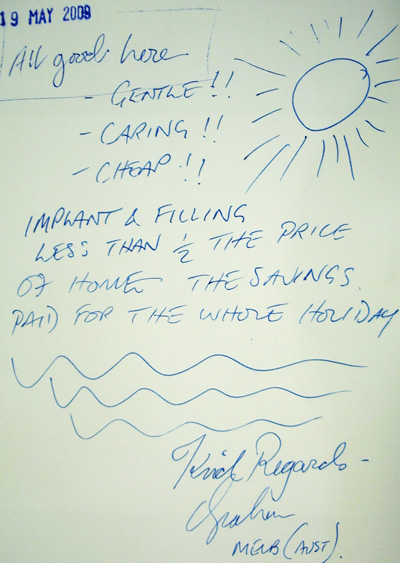 19 MAY 2009
All goods here
- GENTLE!!
- CARING!!
- CHEAP!!
IMPLANT & FILLING
LESS THAN ½ THE PRICE
OF HOME THE SAVINGS.
PAID FOR THE WHOLE HOLIDAY
Kind Regards -
Graham
MELB (AUST).